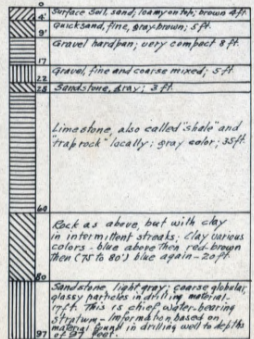 0
Surface soil, sand, loamy on top; brown 4 ft.
4'
Quicksand, fine, gray-brown; 5 ft.
9'
Gravel hardpan; very compact 8 ft.
17
Gravel, fine and coarse mixed; 5 ft.
22
Sandstone, gray; 3 ft.
25
Limestone, also called "shale" and
traprock" locally; gray color; 35 ft.
60
Rock as above, but with clay
in intermittent streaks; Clay various
colors - blue above then red-brown
then (75 to 80') blue again - 20 ft.
80
Sandstone, light gray; coarse globular,
glassy particles in drilling material.
17 ft. This is chief water-bearing
stratum - Information based on
material found in drilling well to depths
of 97 feet.
97